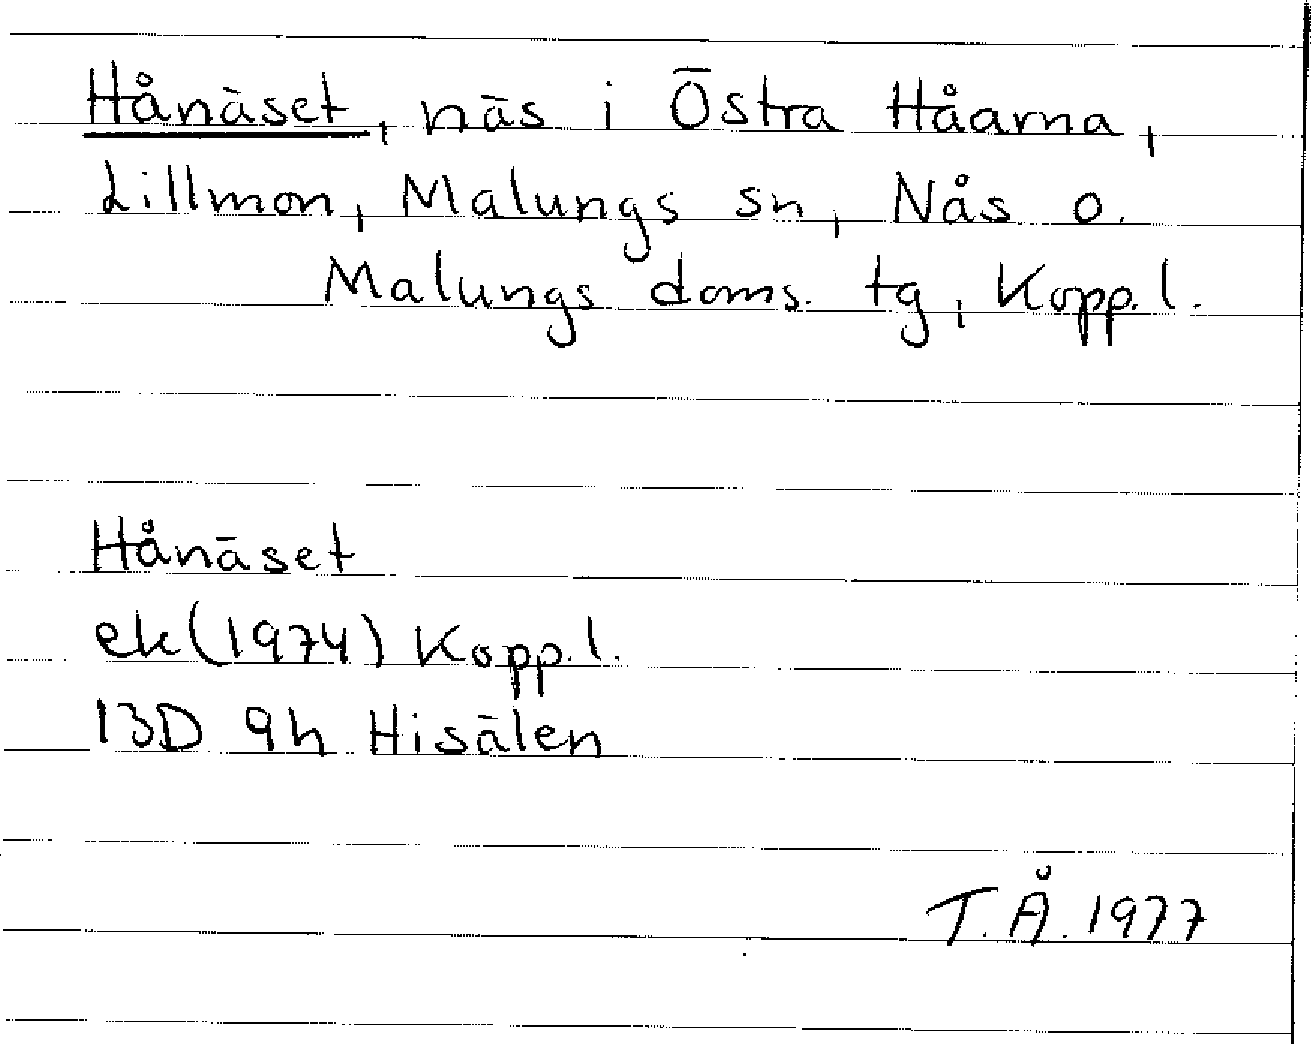 Hånäset, näs i Östra Håarna,
Lillmon, Malungs sn, Nås o.
Malungs doms. tg, Kopp.l.
Hånäset
ek(1974) Kopp.l.
13D 9h Hisälen
T.Å. 1977